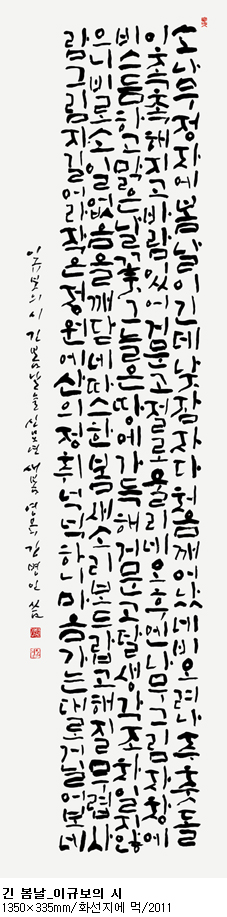 소나무 정자에 봄날이 긴데 낮잠 자다 처음 깨어났네 비 오려나 주춧돌
이 축축해지고 바람 있어 거문고 절로 울리네 오후엔 나무 그림자 창에
비스듬하고 맑은 날 꽃그늘은 땅에 가득해 거문고 탈 생각조차 일지 않
으니 비로소 일 없음을 깨닫네 따스한 봄 새소리 부드럽고 해질 무렵 사
람 그림자 길어라 작은 정원에 산의 정취 넉넉하니 마음 가는 대로 거닐어 보네
이규보의 시 긴 봄날을 신묘년 새봄 김병인 씀
긴 봄날_이규보의 시
1350×335mm/화선지에 먹/2011